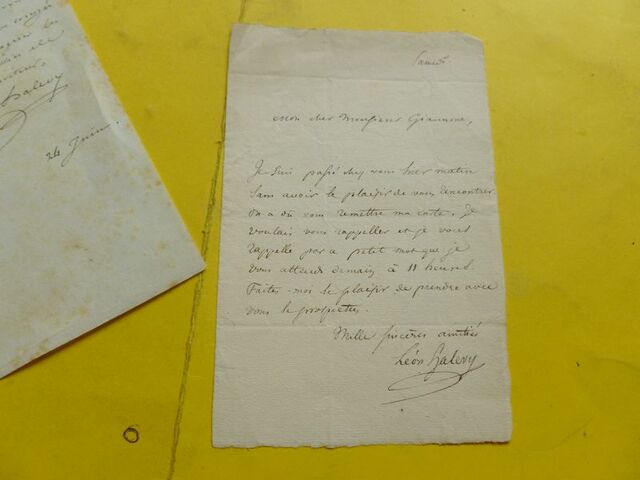 Samedi
Mon cher Monsieur
Je suis passé chez vous hier matin
sans avoir le plaisir de vous rencontrer.
On a dû vous remettre ma carte. Je
voulais vous rappeller et je vous
rappelle par ce petit mot que je
vous attends demain à 11 heures.
Faites-moi le plaisir de prendre avec
vous le prospectus.
Mille sincères amitiés
Léon Halevy
Halevy
24 Juin.